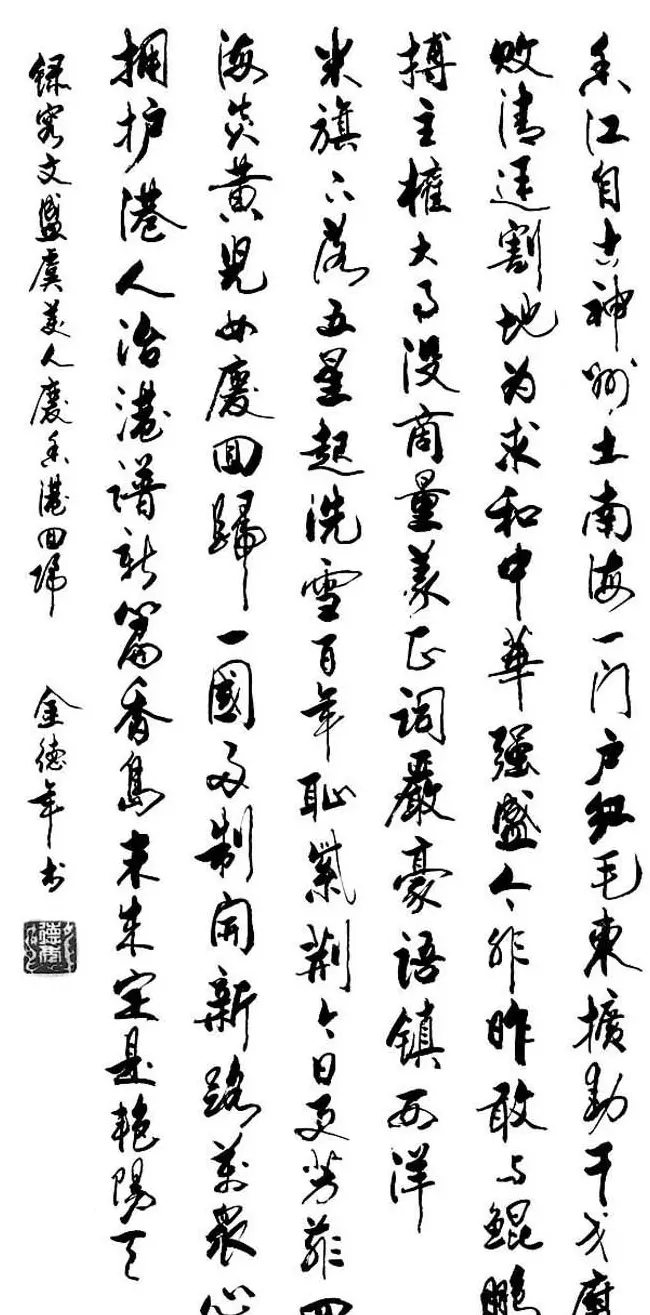 香江自古神州土南海一门户红毛東擴動干戈腐
败清廷割地为求和中華强盛今非昨敢与鲲鹏
搏主權大事没商量義正词嚴豪语镇西洋
米旗下落五星起洗雪百年耻紫荆今日更芳菲四
海炎黄兒女慶回歸一國两制開新路萬衆心
拥护港人治港谱新篇香島未来定是艳陽天
録文盛虞美人慶香港回归 金德年书